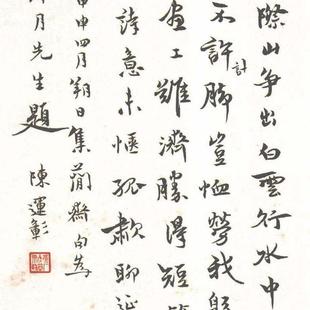 際山爭出白雲行水中
不許腳豈恤勞我躬
詩
畫工雖濟勝得短筇
詩意未愜孤歗聊延
甲申四月朔日集蕳齋句為
月先生題 陳運彰